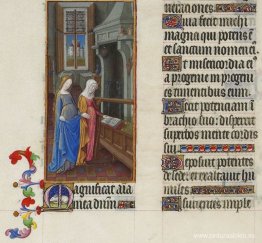 nerationes
Quia fecit michi
magna qui potens e
et sanctum nomen e
Et misericordia e
a progenie in progeni
timentibus eum
Fecit potenciam
brachio suo: dispersit
superbos mente cordis
sui
Deposuit potentes
de sede: et exaltavit hu
miles
Esurientes imple
Magnificat aīa
mea dnm̄